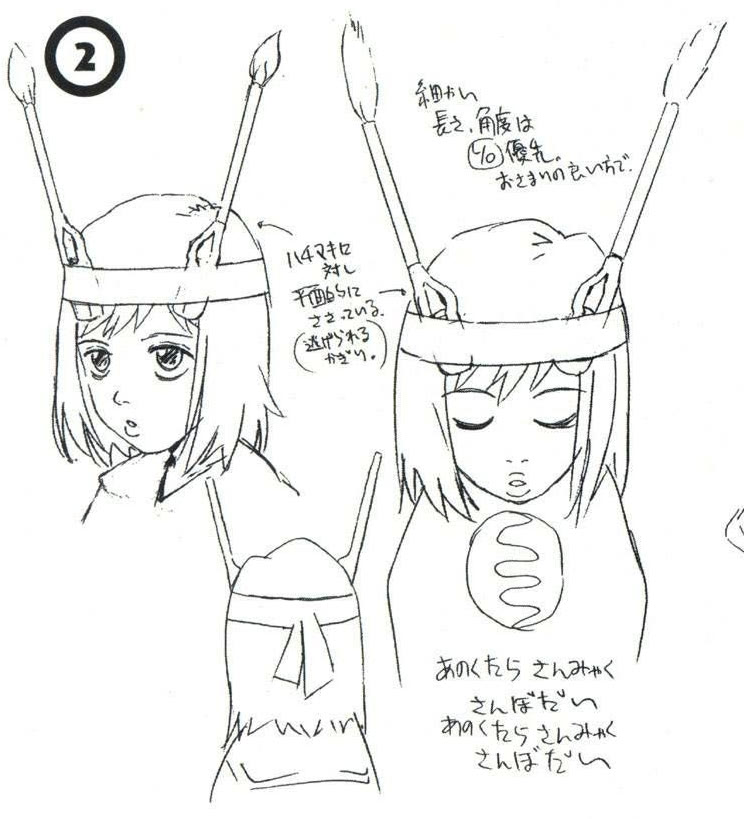 2
細かい
長さ、角度は
L/O優先。
おさまりの良い方で。
ハチマキに
対し
平面的に
ささっている。
(逃げられる
かぎり。)
あのくたら さんみゃく
さんぼだい
あのくたら さんみゃく
さんぼだい